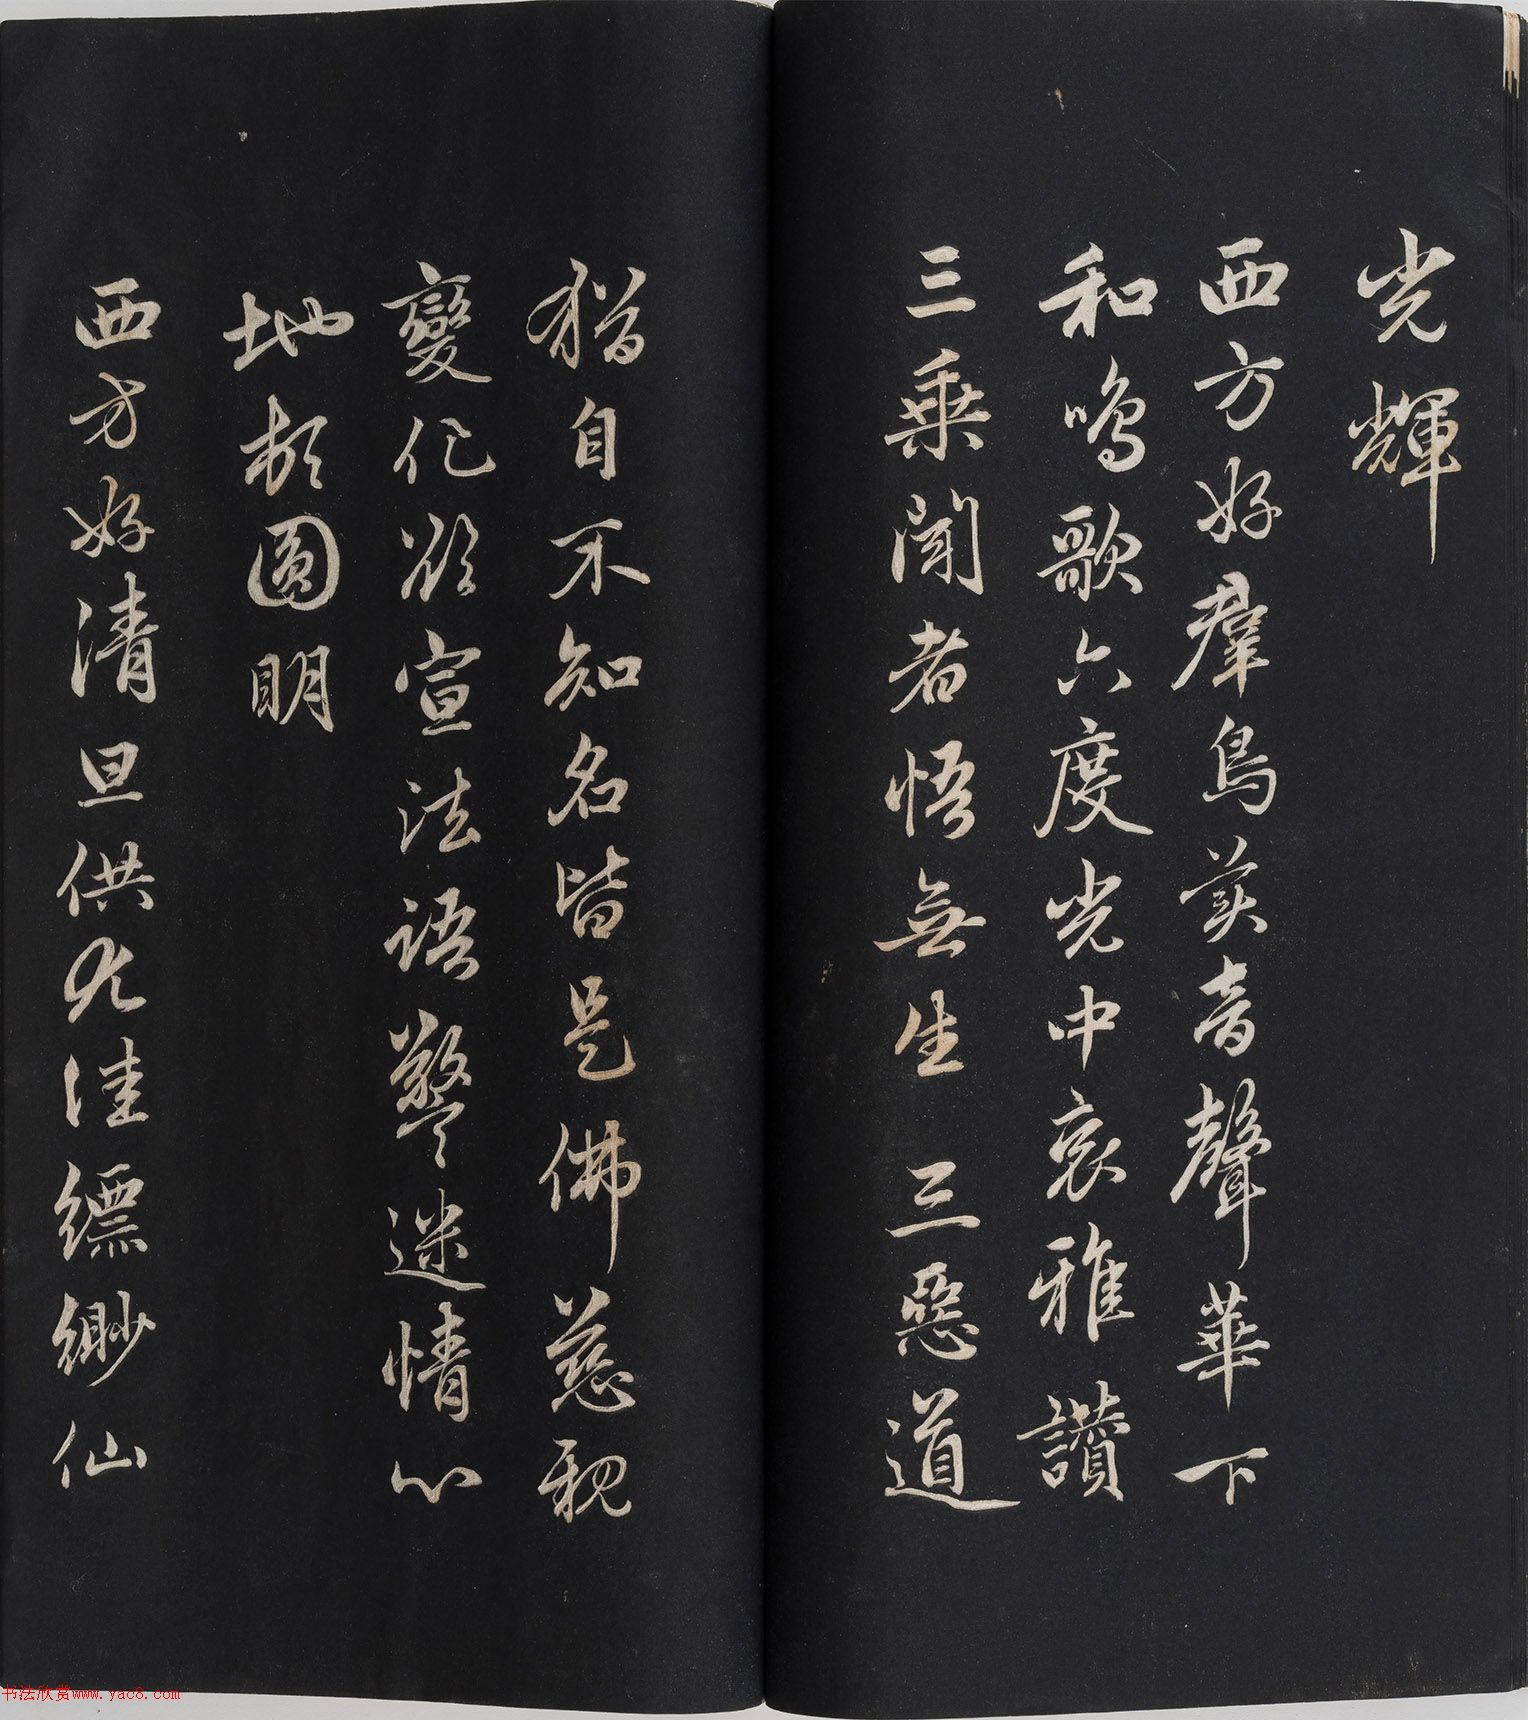 光輝
西方好羣鳥美音聲華下
和鳴歌六度光中哀雅讚
三乗聞者悟無生三惡道
猶自不知名皆是佛慈親
變化欲宣法語警迷情心
地頓圓明
西方好清旦供尤佳縹緲仙
书法欣赏www.yac8.com